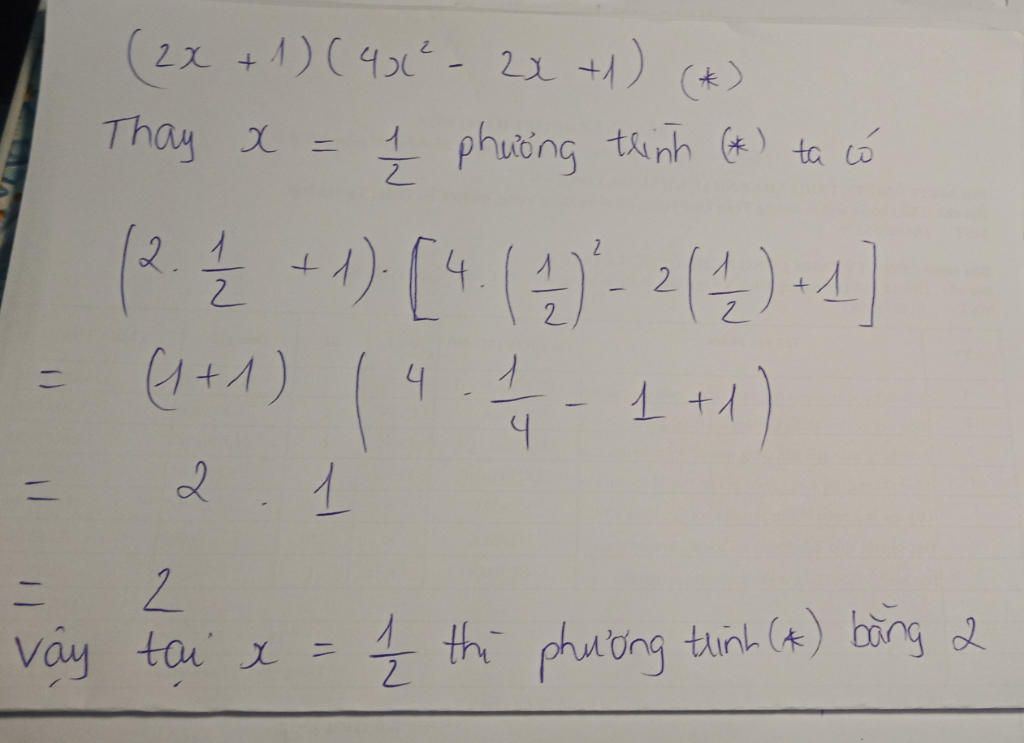 (2x + 1)(4x² - 2x + 1) (*)
Thay x = 1/2 phương trình (*) ta có
(2. 1/2 + 1). [4. (1/2)² - 2(1/2) + 1]
= (1+1) (4 . 1/4 - 1 + 1)
= 2 . 1
= 2
Vậy tại x = 1/2 thì phương trình (*) bằng 2